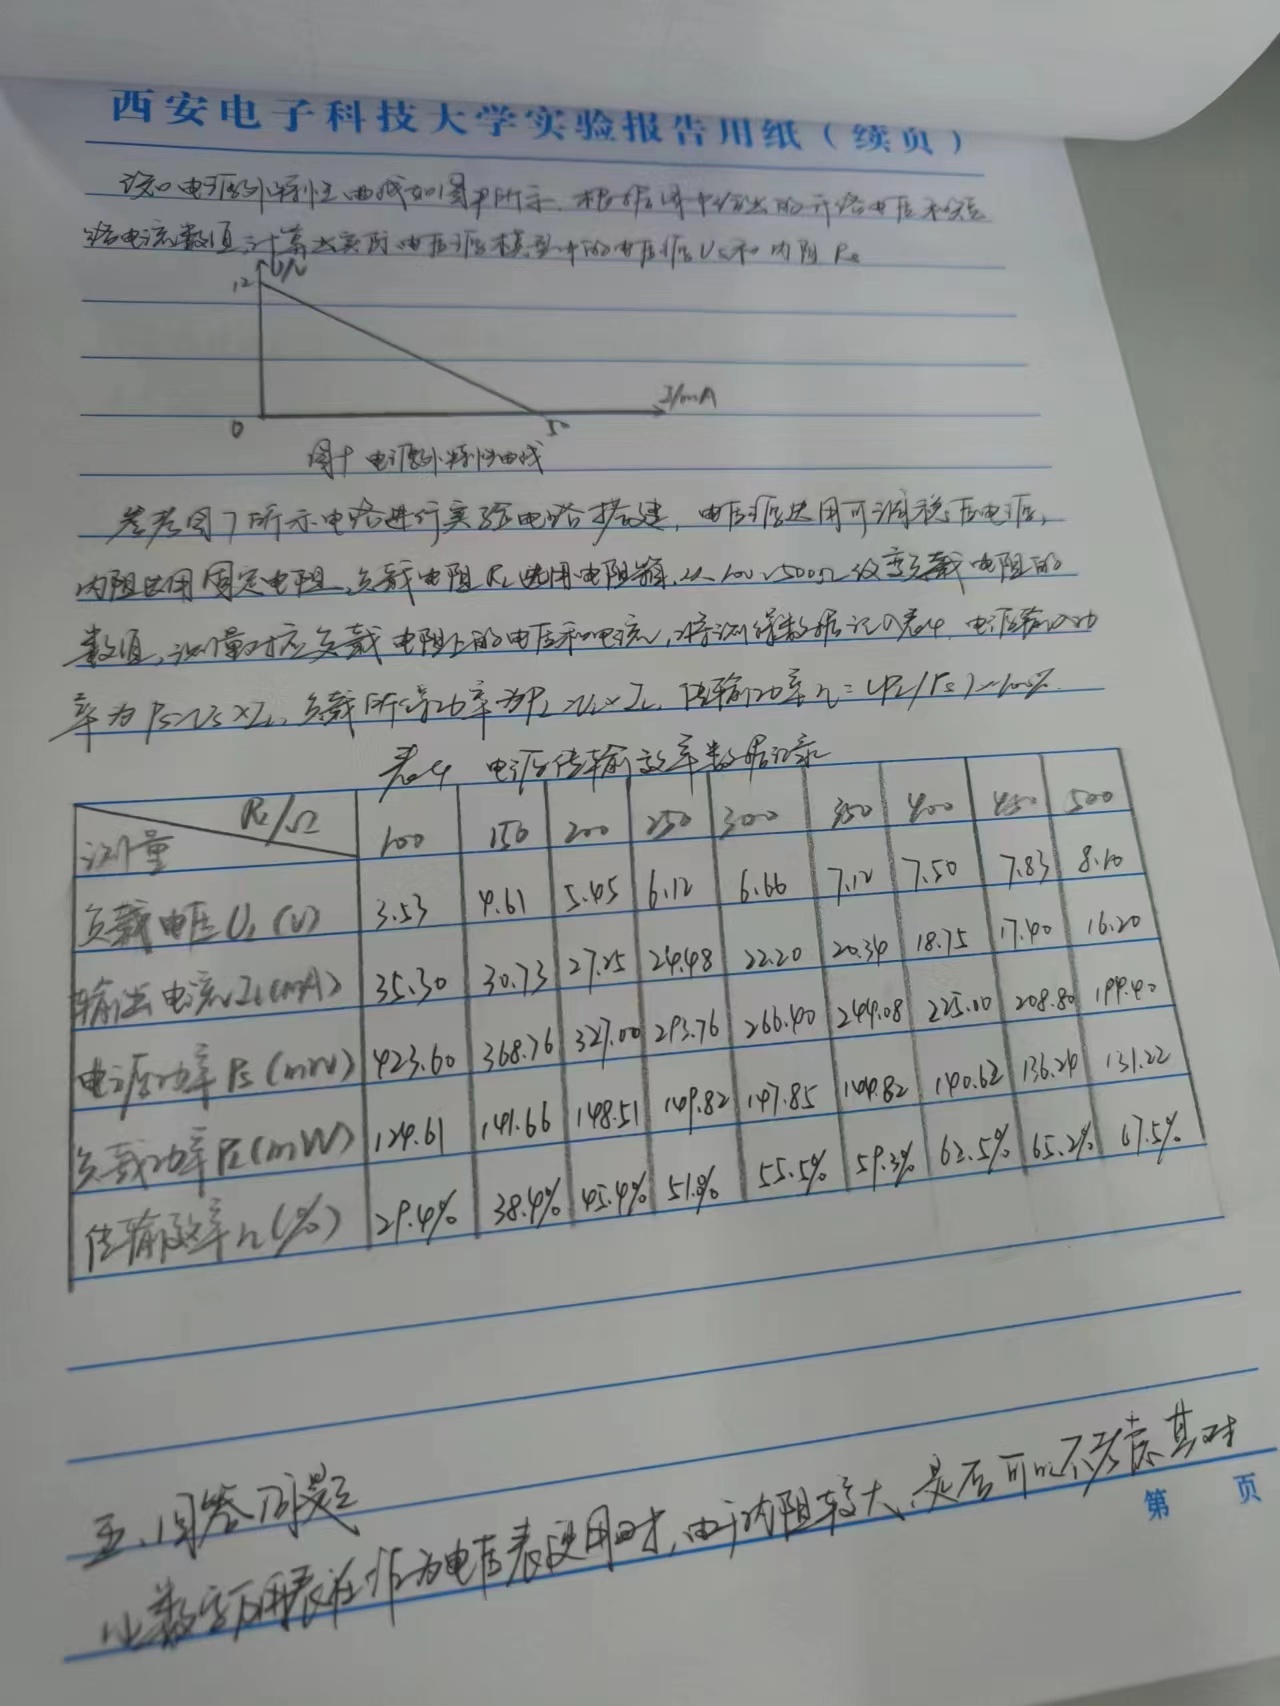 西安电子科技大学实验报告用纸（续页）
设电源外特性曲线如图中所示，根据图中给出的开路电压和短
路电流数值，计算出实际电压源模型中的电压源Us和内阻Rs
U/V
12
0
50
I/mA
电源外特性曲线
参考图7所示电路进行实验电路搭建，电压源选用可调稳压电源，
内阻选用固定电阻，负载电阻RL选用电阻箱，从100~500Ω改变负载电阻的
数值，测量对应负载电阻上的电压和电流，将测得数据记入表4，电源输入功
率为Ps=Us×IL，负载所得功率为PL=UL×IL，传输功率η=(PL/Ps)×100%.
表4 电源传输效率数据记录
测量 RL/Ω 100 150 200 250 300 350 400 450 500
负载电压UL(V) 3.53 4.61 5.45 6.12 6.66 7.12 7.50 7.83 8.10
输出电流IL(mA) 35.30 30.73 27.25 24.48 22.20 20.34 18.75 17.40 16.20
电源功率Ps(mW) 423.60 368.76 327.00 293.76 266.40 244.08 225.00 208.80 194.40
负载功率PL(mW) 124.61 141.66 148.51 149.82 147.85 144.82 140.62 136.24 131.22
传输效率η(%) 29.4% 38.4% 45.4% 51% 55.5% 59.3% 62.5% 65.2% 67.5%
五、回答问题
(1)数字万用表在作为电压表使用时，由于内阻较大，是否可以不考虑其对
第 页